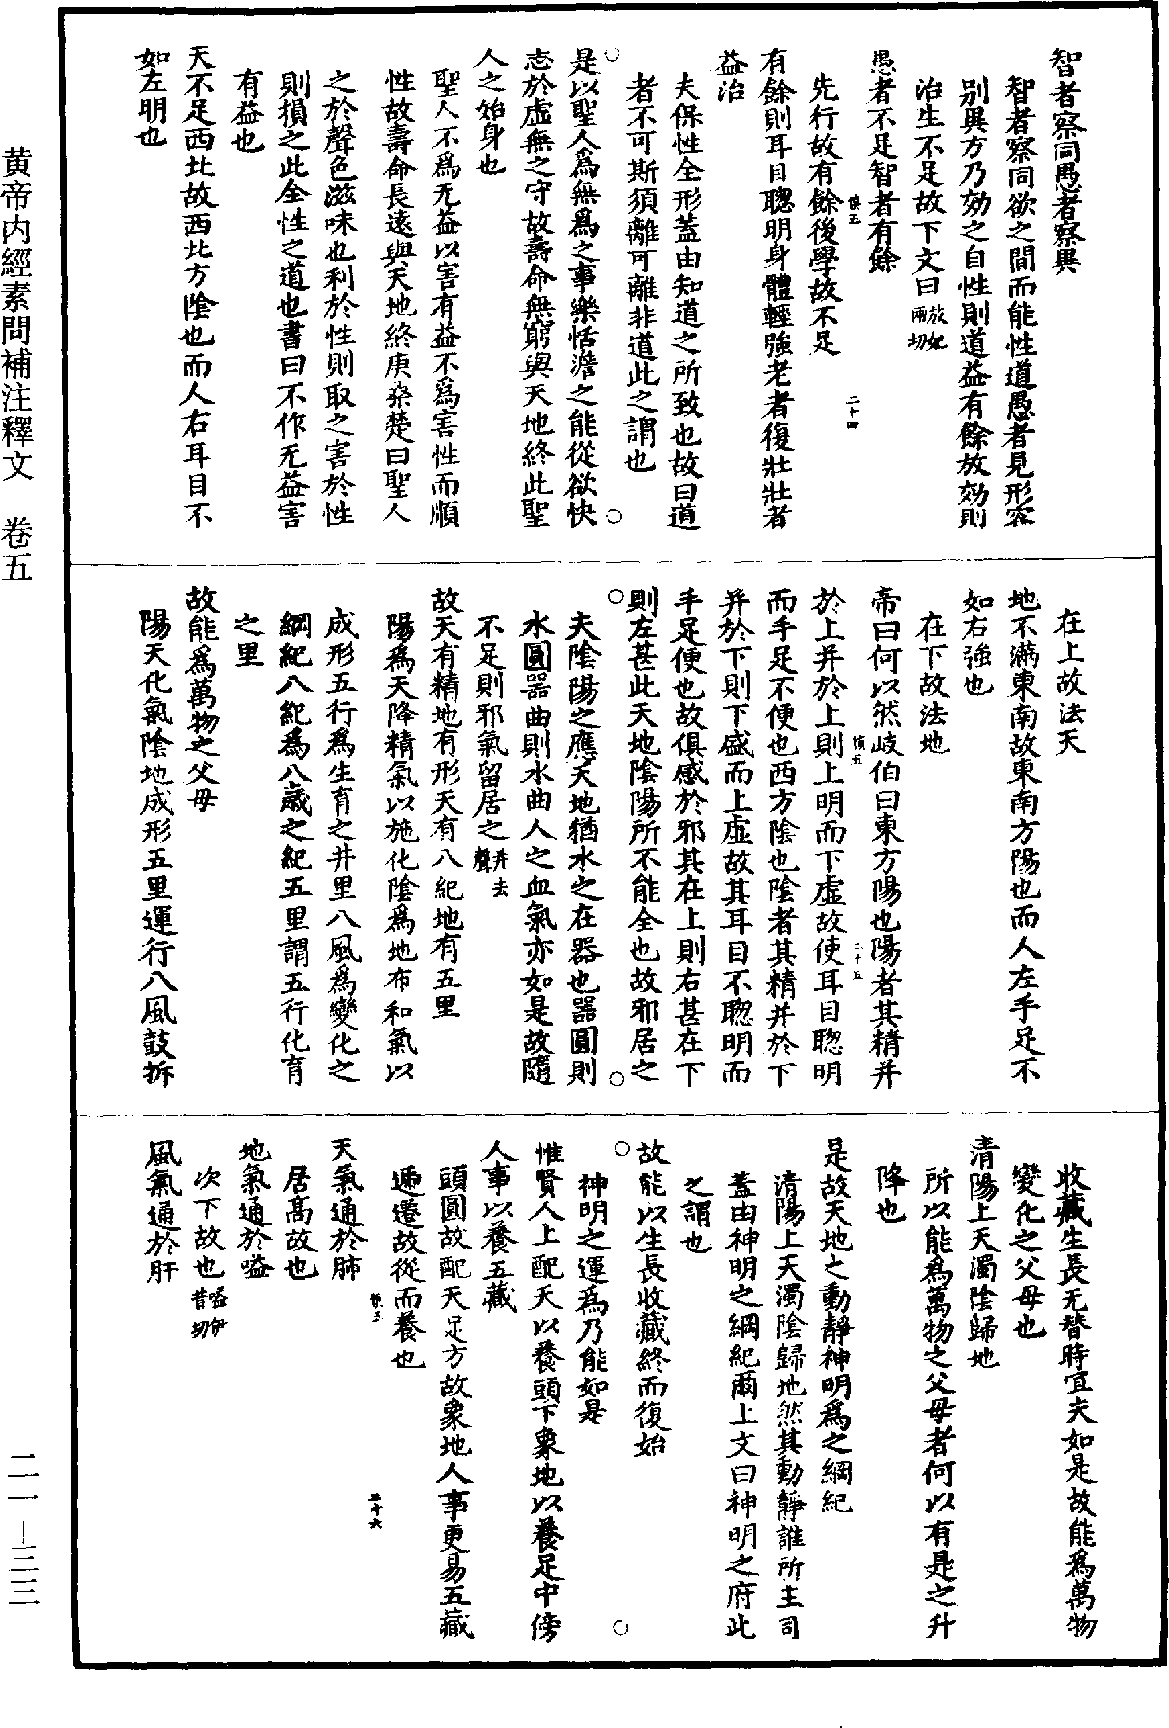 智者察同愚者察異
智者察同欲之間而能性道愚者見形容
别異方乃効之自性則道益有餘放効則
治生不足故下文曰放妃兩切
愚者不足智者有餘
先行故有餘後學故不足
慎五
二十四
有餘則耳目聰明身體輕強老者復壯壯者
益治
夫保性全形蓋由知道之所致也故曰道
者不可斯須離可離非道此之謂也
是以聖人爲無爲之事樂恬澹之能從欲快
志於虛無之守故壽命無窮與天地終此聖
人之始身也
聖人不爲无益以害有益不爲害性而順
性故壽命長遠與天地終庚桑楚曰聖人
之於聲色滋味也利於性則取之害於性
則損之此全性之道也書曰不作无益害
有益也
天不足西北故西北方陰也而人右耳目不
如左明也
在上故法天
地不滿東南故東南方陽也而人左手足不
如右強也
在下故法地
帝曰何以然岐伯曰東方陽也陽者其精并
慎五
二十五
於上并於上則上明而下虛故使耳目聰明
而手足不便也西方陰也陰者其精并於下
并於下則下盛而上虛故其耳目不聰明而
手足便也故俱感於邪其在上則右甚在下
則左甚此天地陰陽所不能全也故邪居之
夫陰陽之應天地猶水之在器也器圓則
水圓器曲則水曲人之血氣亦如是故隨
不足則邪氣留居之并去聲
故天有精地有形天有八紀地有五里
陽爲天降精氣以施化陰爲地布和氣以
成形五行爲生育之井里八風爲變化之
綱紀八紀爲八歲之紀五里謂五行化育
之里
故能爲萬物之父母
陽天化氣陰地成形五里運行八風鼓拆
收藏生長无替時宜夫如是故能爲萬物
變化之父母也
清陽上天濁陰歸地
所以能爲萬物之父母者何以有是之升
降也
是故天地之動靜神明爲之綱紀
清陽上天濁陰歸地然其動靜誰所主司
蓋由神明之綱紀爾上文曰神明之府此
之謂也
故能以生長收藏終而復始
神明之運爲乃能如是
惟賢人上配天以養頭下象地以養足中傍
人事以養五藏
頭圓故配天足方故象地人事更易五藏
遞遷故從而養也
慎五
二十六
天氣通於肺
居高故也
地氣通於嗌
次下故也嗌伊昔切
風氣通於肝
黄帝内經素問補注釋文　卷五
二一—三三